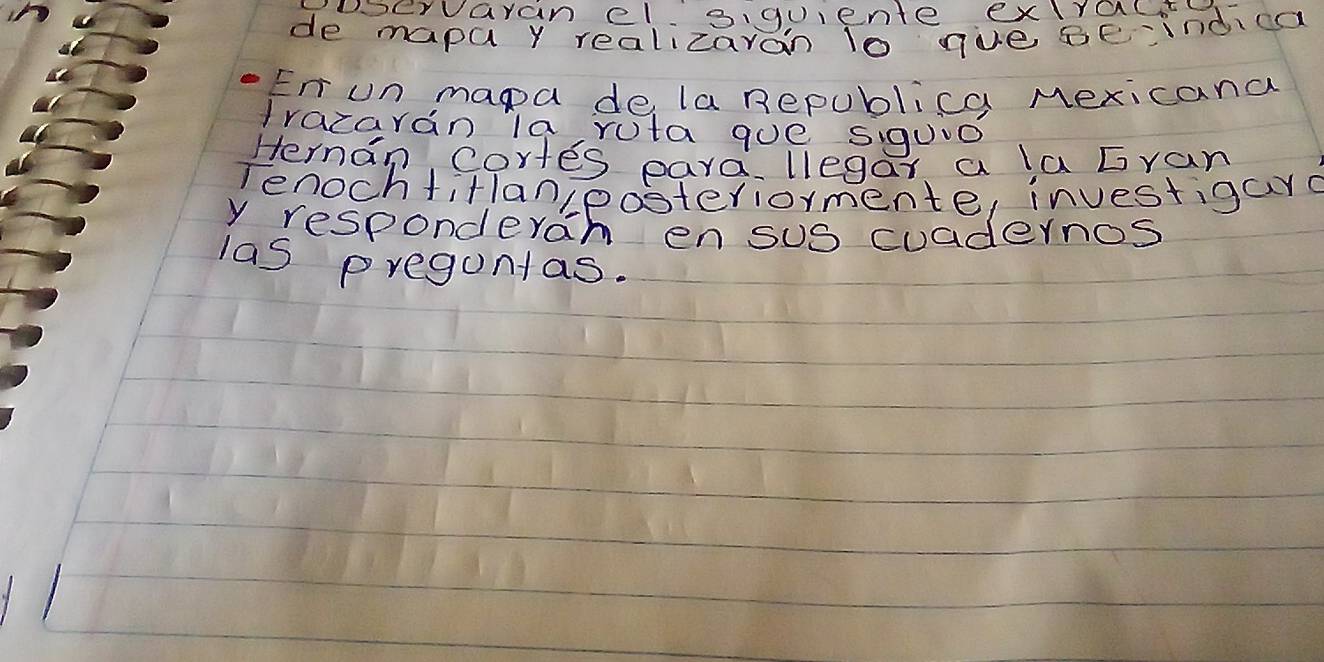 observarán el siguiente extracto
de mapa y realizarán lo que se indica
• En un mapa de la Republica Mexicana
trazarán la ruta que siguio
Hernán cortés para llegar a la Gran
Tenochtitlan, posteriormente, investigara
y responderán en sus cuadernos
las preguntas.